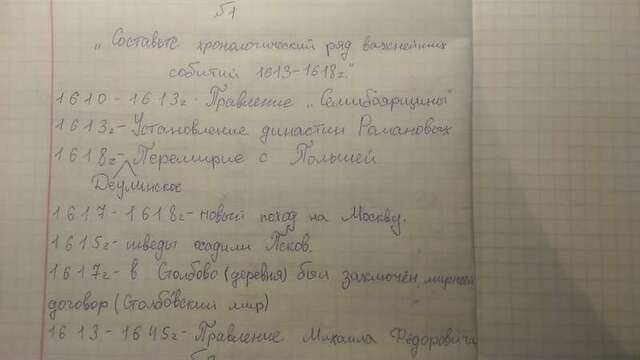 „Составьте хронологический ряд важнейших
событий 1613-1618г."
1610-1613г. Правление „Семибоярщины"
1613г-Установление династии Романовых
1618г-Перемирие с Польшей
Деулинское
1617-1618г-новый поход на Москву.
1615г-шведы осадили Псков.
1617г-в Столбово (деревня) был заключён мирный
договор (Столбовский мир)
1613-1645г-Правление Михаила Фёдоровича